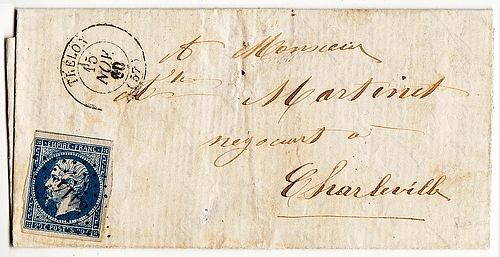 TRELON
15
NOV.
60
(57)
A Monsieur
Martinet
négociant à
Charleville
EMPIRE FRANC.
20 C POSTES 20 C